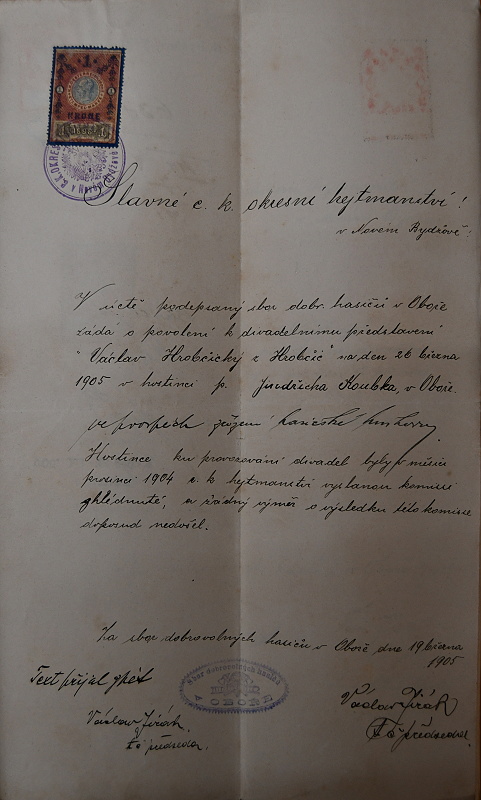 1
KRONE
C. K. OKRES
v Novém Bydžově
Slavné c. k. okresní hejtmanství!
v Novém Bydžově!
V úctě podepsaný sbor dobr. hasičů v Oboře
žádá o povolení k divadelnímu představení
"Václav Hrobčický z Hrobčic" na den 26 března
1905 v hostinci p. Jindřicha Koubka, v Oboře.
ve prospěch zřízení hasičské
Hostince ku provozování divadel byly v měsíci
prosinci 1904 c. k. hejtmanství vyslanou komisí
shlédnuté, a žádný výměr o výsledku této komisse
doposud nedošel.
Za sbor dobrovolných hasičů v Oboře dne 19 března
1905
Text přijal zpět
Sbor dobrovolných hasičů
v OBOŘE
Václav Jirák
předseda.
Václav Jirák
předseda